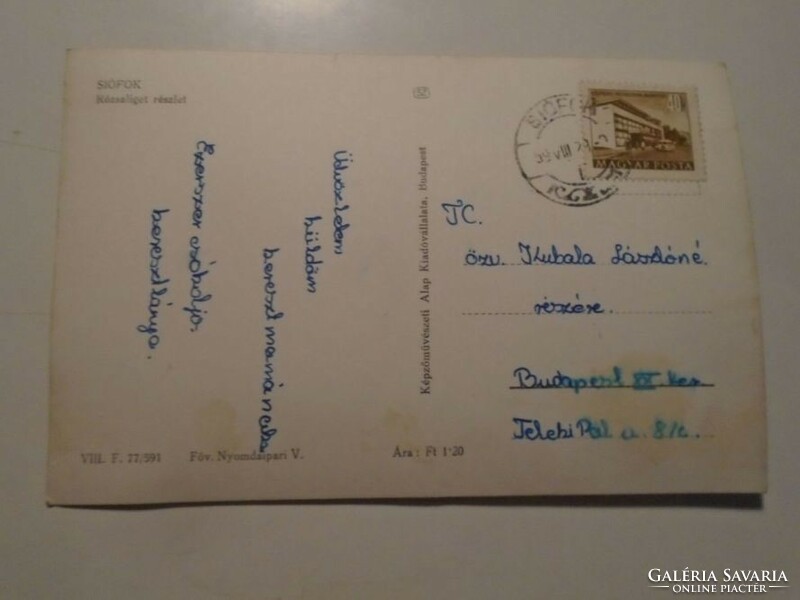 SIÓFOK
Rózsaliget részlet
Üdvözletem
küldöm
kereszt mamának
Ezerszer csókolja
keresztlánya.
Képzőművészeti Alap Kiadóvállalata, Budapest
VIII. F. 77/591 Főv. Nyomdaipari V. Ára: Ft 1·20
SIÓFOK
59 VIII 29
40
MAGYAR POSTA
TC.
özv. Kubala Lászlóné
részére.
Budapest XX ker
Teleki Pál u. 8/c.
GALÉRIA SAVARIA
ONLINE PIACTÉR